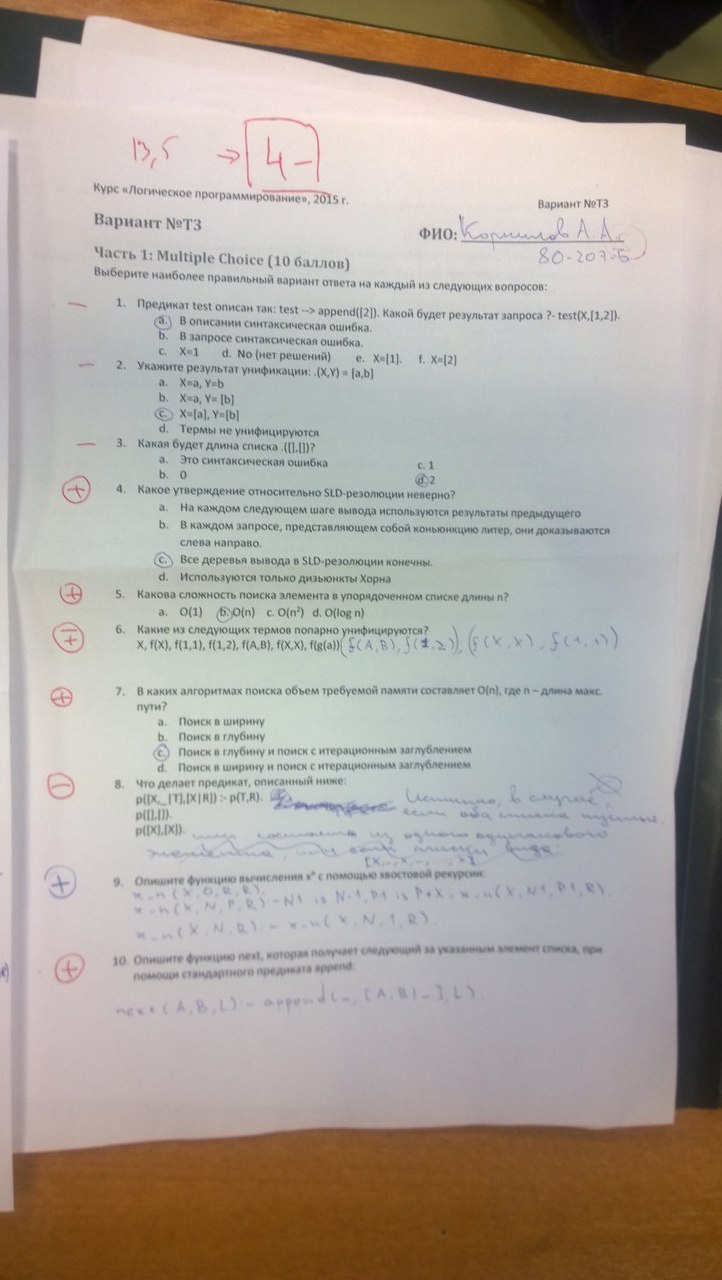 13,5 → 4-
Курс «Логическое программирование», 2015 г.
Вариант №Т3
Вариант №Т3
ФИО: Корнилов А А.
80-207Б
Часть 1: Multiple Choice (10 баллов)
Выберите наиболее правильный вариант ответа на каждый из следующих вопросов:
− 1. Предикат test описан так: test --> append([2]). Какой будет результат запроса ?- test(X,[1,2]).
a. В описании синтаксическая ошибка.
b. В запросе синтаксическая ошибка.
c. X=1 d. No (нет решений) e. X=[1]. f. X=[2]
− 2. Укажите результат унификации: .(X,Y) = [a,b]
a. X=a, Y=b
b. X=a, Y= [b]
c. X=[a], Y=[b]
d. Термы не унифицируются
− 3. Какая будет длина списка .([],[])?
a. Это синтаксическая ошибка c. 1
b. 0 d. 2
+ 4. Какое утверждение относительно SLD-резолюции неверно?
a. На каждом следующем шаге вывода используются результаты предыдущего
b. В каждом запросе, представляющем собой конъюнкцию литер, они доказываются
слева направо.
c. Все деревья вывода в SLD-резолюции конечны.
d. Используются только дизъюнкты Хорна
+ 5. Какова сложность поиска элемента в упорядоченном списке длины n?
a. O(1) b. O(n) c. O(n²) d. O(log n)
∓ 6. Какие из следующих термов попарно унифицируются?
X, f(X), f(1,1), f(1,2), f(A,B), f(X,X), f(g(a)) (f(A,B), f(1,2)), (f(X,X), f(1,1))
+ 7. В каких алгоритмах поиска объем требуемой памяти составляет O(n), где n – длина макс.
пути?
a. Поиск в ширину
b. Поиск в глубину
c. Поиск в глубину и поиск с итерационным заглублением
d. Поиск в ширину и поиск с итерационным заглублением
− 8. Что делает предикат, описанный ниже:
p([X,_|T],[X|R]) :- p(T,R). Истинно, в случае,
p([],[]). если оба списка пустые
p([X],[X]). или состоят из одного одинакового
элемента, или если списки вида:
+ 9. Опишите функцию вычисления xⁿ с помощью хвостовой рекурсии:
x_n(X,0,R,R).
x_n(X,N,P,R) :- N1 is N-1, P1 is P*X, x_n(X,N1,P1,R).
x_n(X,N,R) :- x_n(X,N,1,R)
+ 10. Опишите функцию next, которая получает следующий за указанным элемент списка, при
помощи стандартного предиката append:
next(A,B,L) :- append(_,[A,B|_],L).